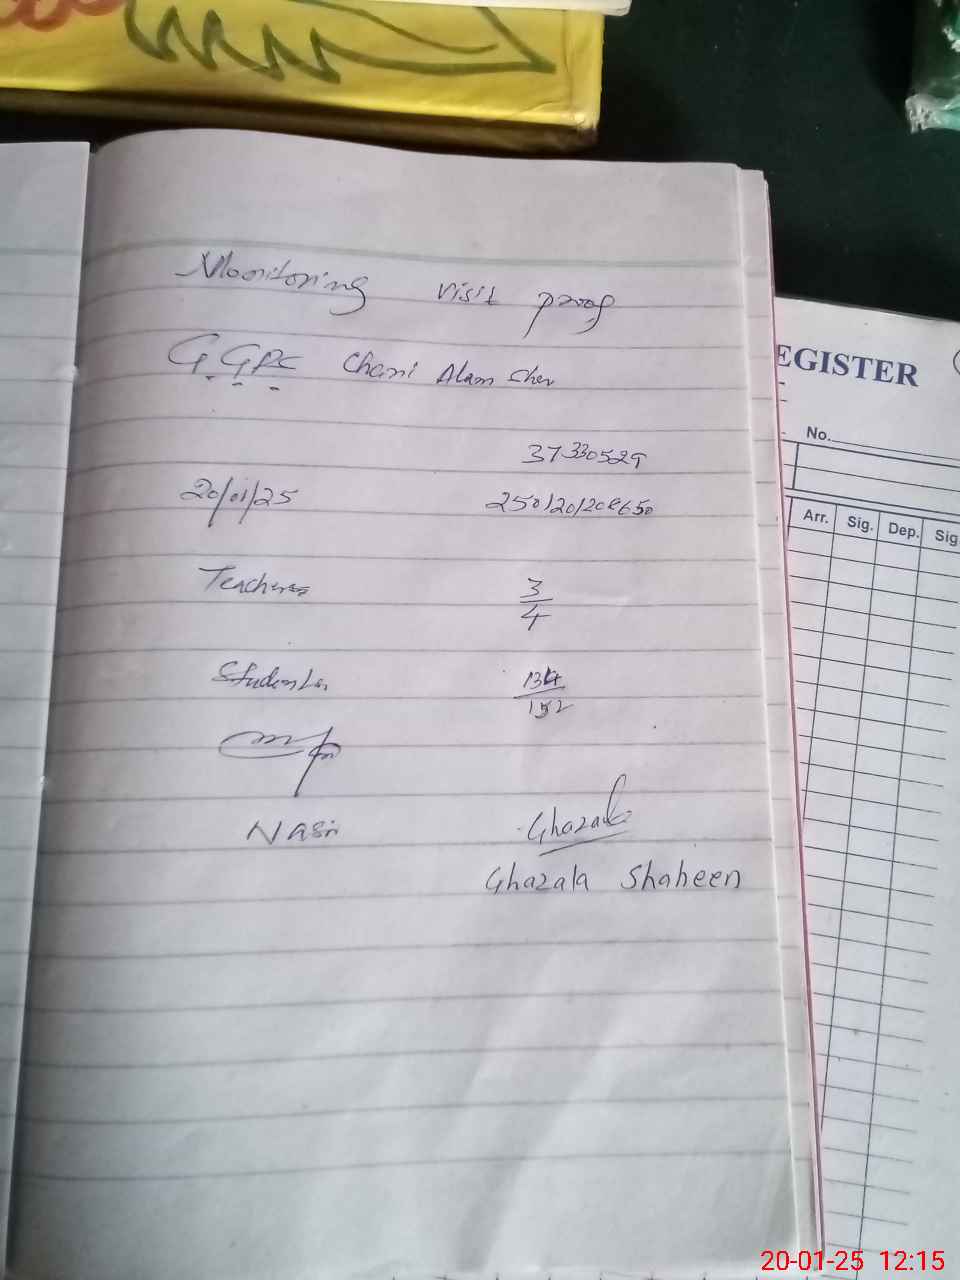 Monitoring visit proof
G.G.P.S Chani Alam Sher
37330529
20/01/25
Teachers 3/4
Students 134/152
Nasir
Ghazala
Ghazala Shaheen
REGISTER
No.
Arr. Sig. Dep. Sig
20-01-25 12:15